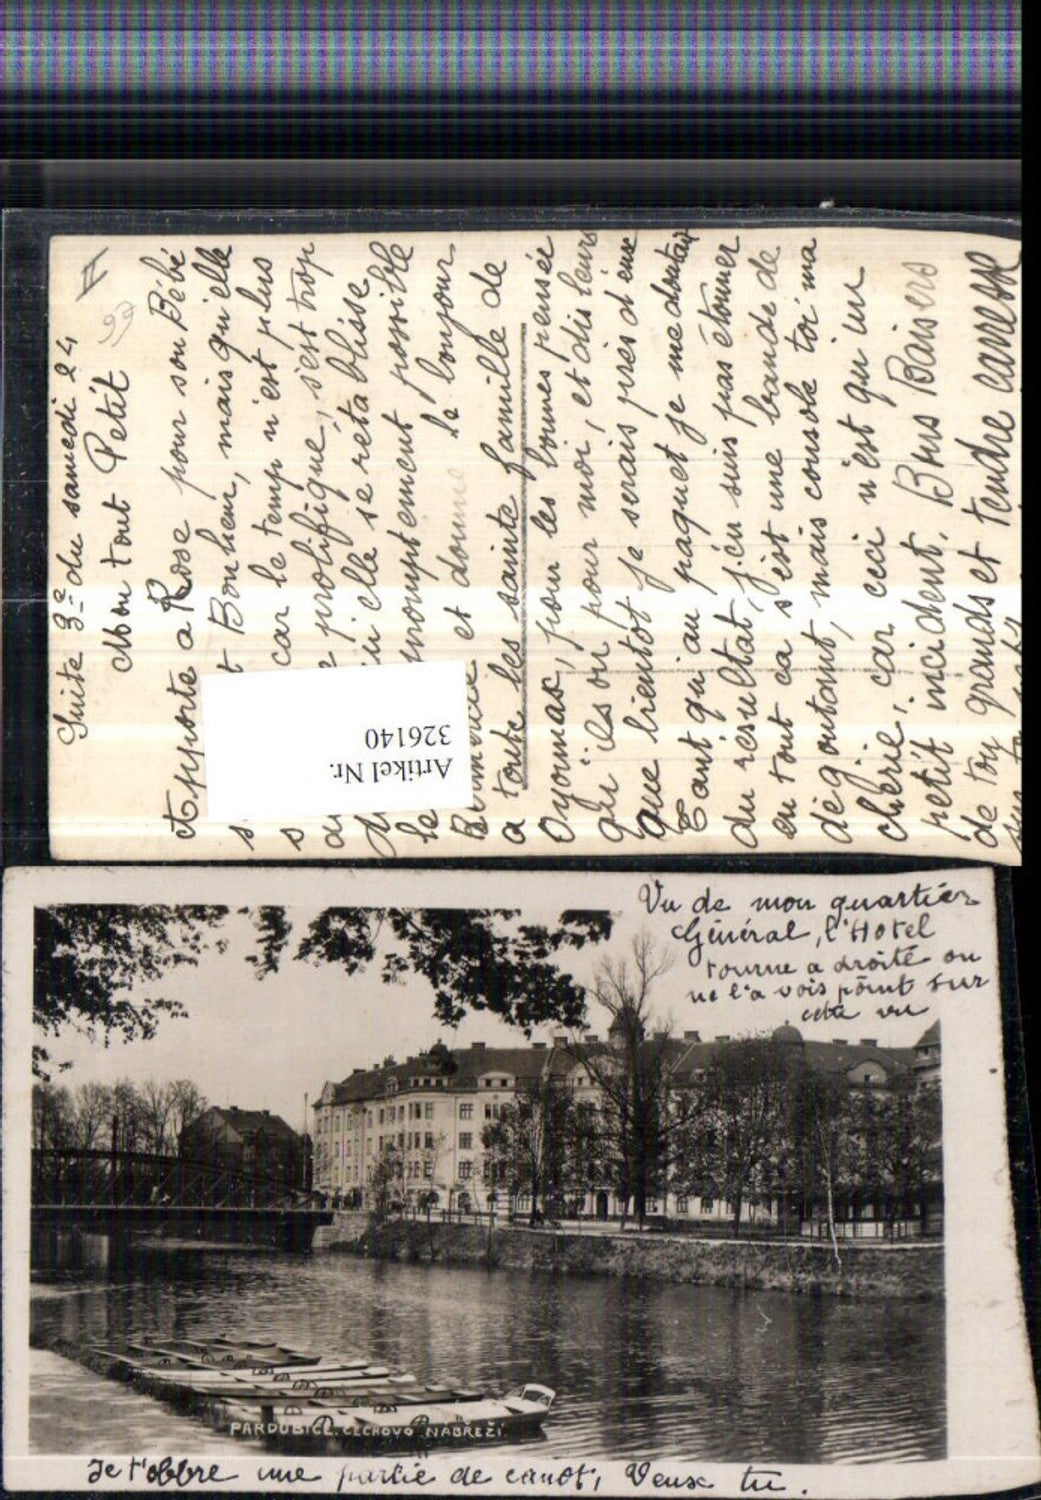 Suite 3e du samedi 24
Mon tout Petit
97
Apporte a Rose pour son Bébé
Bonheur, mais qu'elle
car le temp n'est plus
prolifique, s'est trop
elle se rétablisse
promptement possible
et donne le bonjour
a toute les sainte famille de
Oyonnax, pour les bonnes pensée
qu'ils on pour moi, et dis leurs
que bientot je serais pres d'eux
Tant qu'au paquet je me doutais
du resultat, j'en suis pas étonner
en tout ca s'est une bande de
dégoutant, mais console toi ma
chérie, car ceci n'est qu'un
petit incident. Bons Baisers
de toy grands et tendre carresse
Artikel Nr.
326140
Vu de mon quartier
Général, l'Hotel
tourne a droite on
ne l'a vois point sur
cette vu
PARDUBICE. ČECHOVO NÁBŘEŽÍ.
Je t'offre une partie de canot, Veux tu.